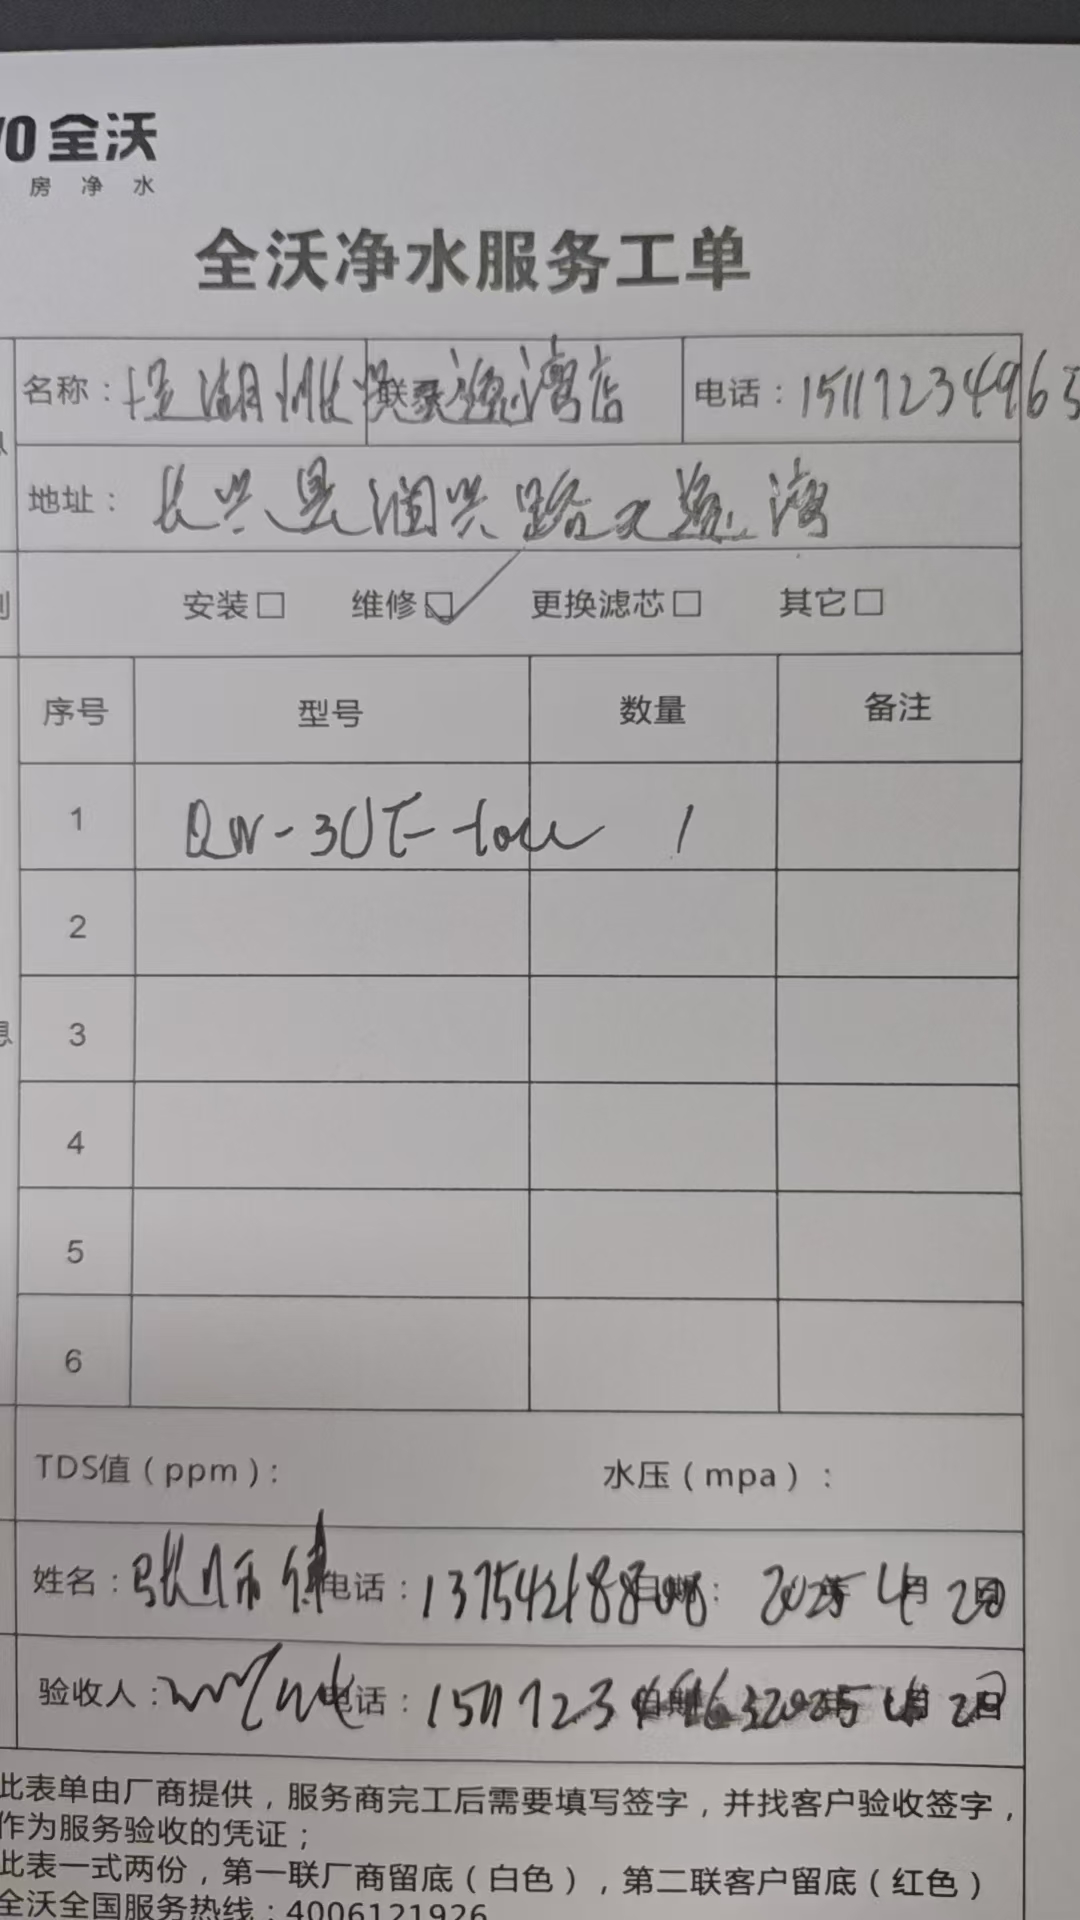 全沃
房净水
全沃净水服务工单
名称： 湖州长兴 联系 湾店 电话：15117234963
地址：长兴县润兴路 湾
安装□ 维修☑ 更换滤芯□ 其它□
序号 型号 数量 备注
1 QW-3UF- 1
2
3
4
5
6
TDS值（ppm）： 水压（mpa）：
姓名：张师傅 电话：13754218808 日期： 2025年4月20日
验收人： 电话：15117234963 日期 2025年4月20日
此表单由厂商提供，服务商完工后需要填写签字，并找客户验收签字，
作为服务验收的凭证；
此表一式两份，第一联厂商留底（白色），第二联客户留底（红色）
全沃全国服务热线：4006121926